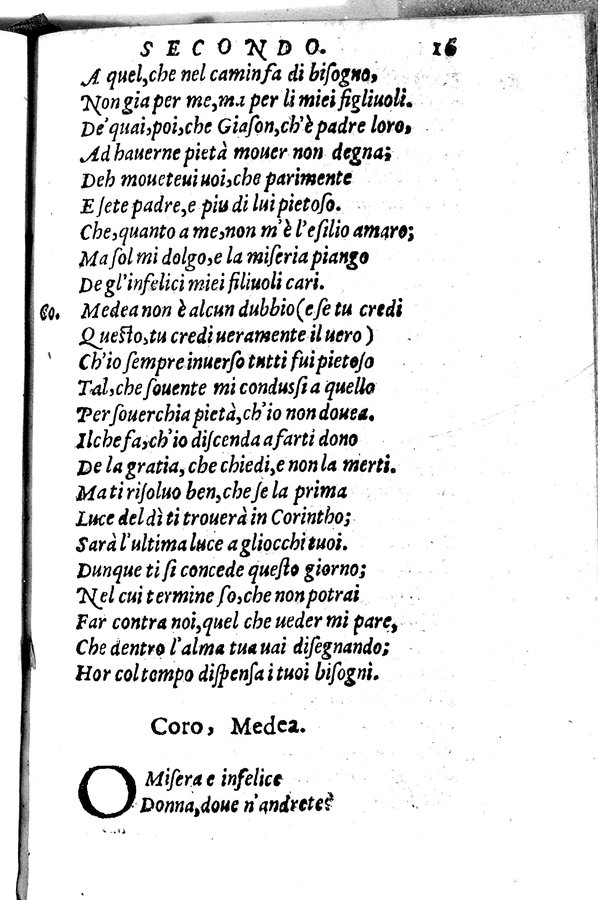 SECONDO. 16
A quel,che nel caminfa di biſogno,
Non gia per me,ma per li miei figliuoli.
De'quai,poi,che Giaſon,ch'è padre loro,
Ad hauerne pietà mouer non degna;
Deh moueteui uoi,che parimente
E ſete padre,e piu di lui pietoſo.
Che,quanto a me,non m'è l'eſilio amaro;
Ma ſol mi dolgo,e la miſeria piango
De gl'infelici miei filiuoli cari.
Co. Medea non è alcun dubbio(e ſe tu credi
Queſto,tu credi ueramente il uero)
Ch'io ſempre inuerſo tutti fui pietoſo
Tal,che ſouente mi conduſſi a quello
Per ſouerchia pietà,ch'io non douea.
Ilche fa,ch'io diſcenda a farti dono
De la gratia, che chiedi,e non la merti.
Ma ti riſoluo ben,che ſe la prima
Luce del dì ti trouerà in Corintho;
Sarà l'ultima luce a gliocchi tuoi.
Dunque ti ſi concede queſto giorno;
Nel cui termine ſo,che non potrai
Far contra noi,quel che ueder mi pare,
Che dentro l'alma tua uai diſegnando;
Hor col tempo diſpenſa i tuoi biſogni.
Coro, Medea.
O Miſera e infelice
Donna,doue n'andrete?